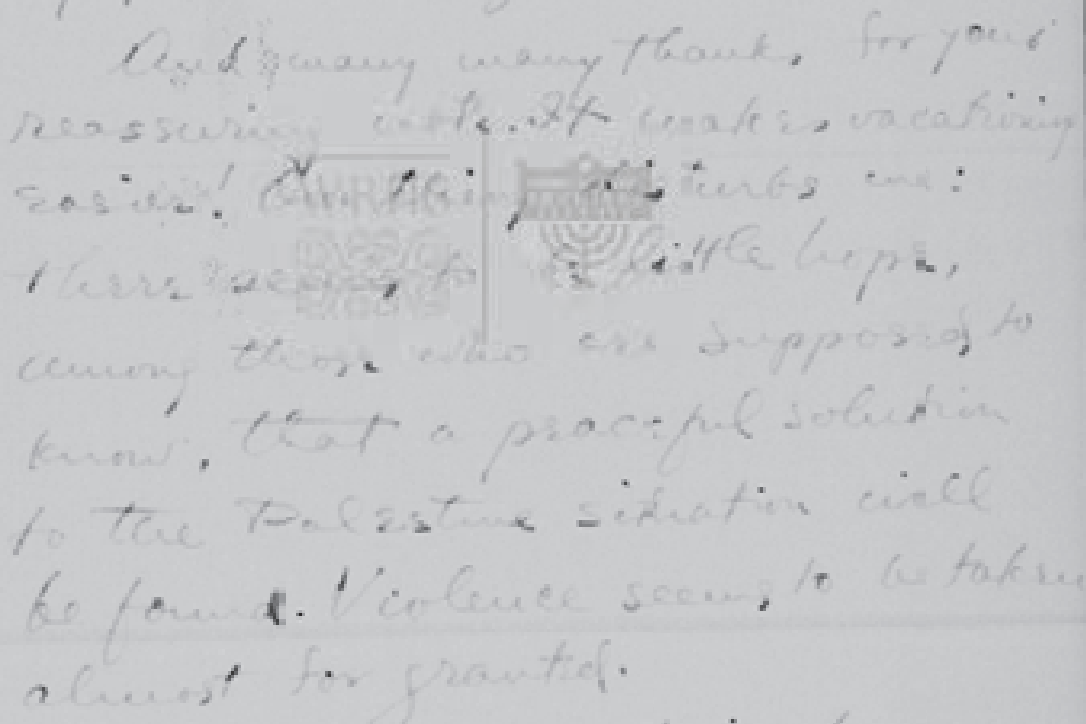 And many many thanks for your
reassuring note. It makes vacationing
easier! One thing disturbs me:
There seems to be little hope,
among those who are supposed to
know, that a peaceful solution
to the Palestine situation will
be found. Violence seems to be taken
almost for granted.